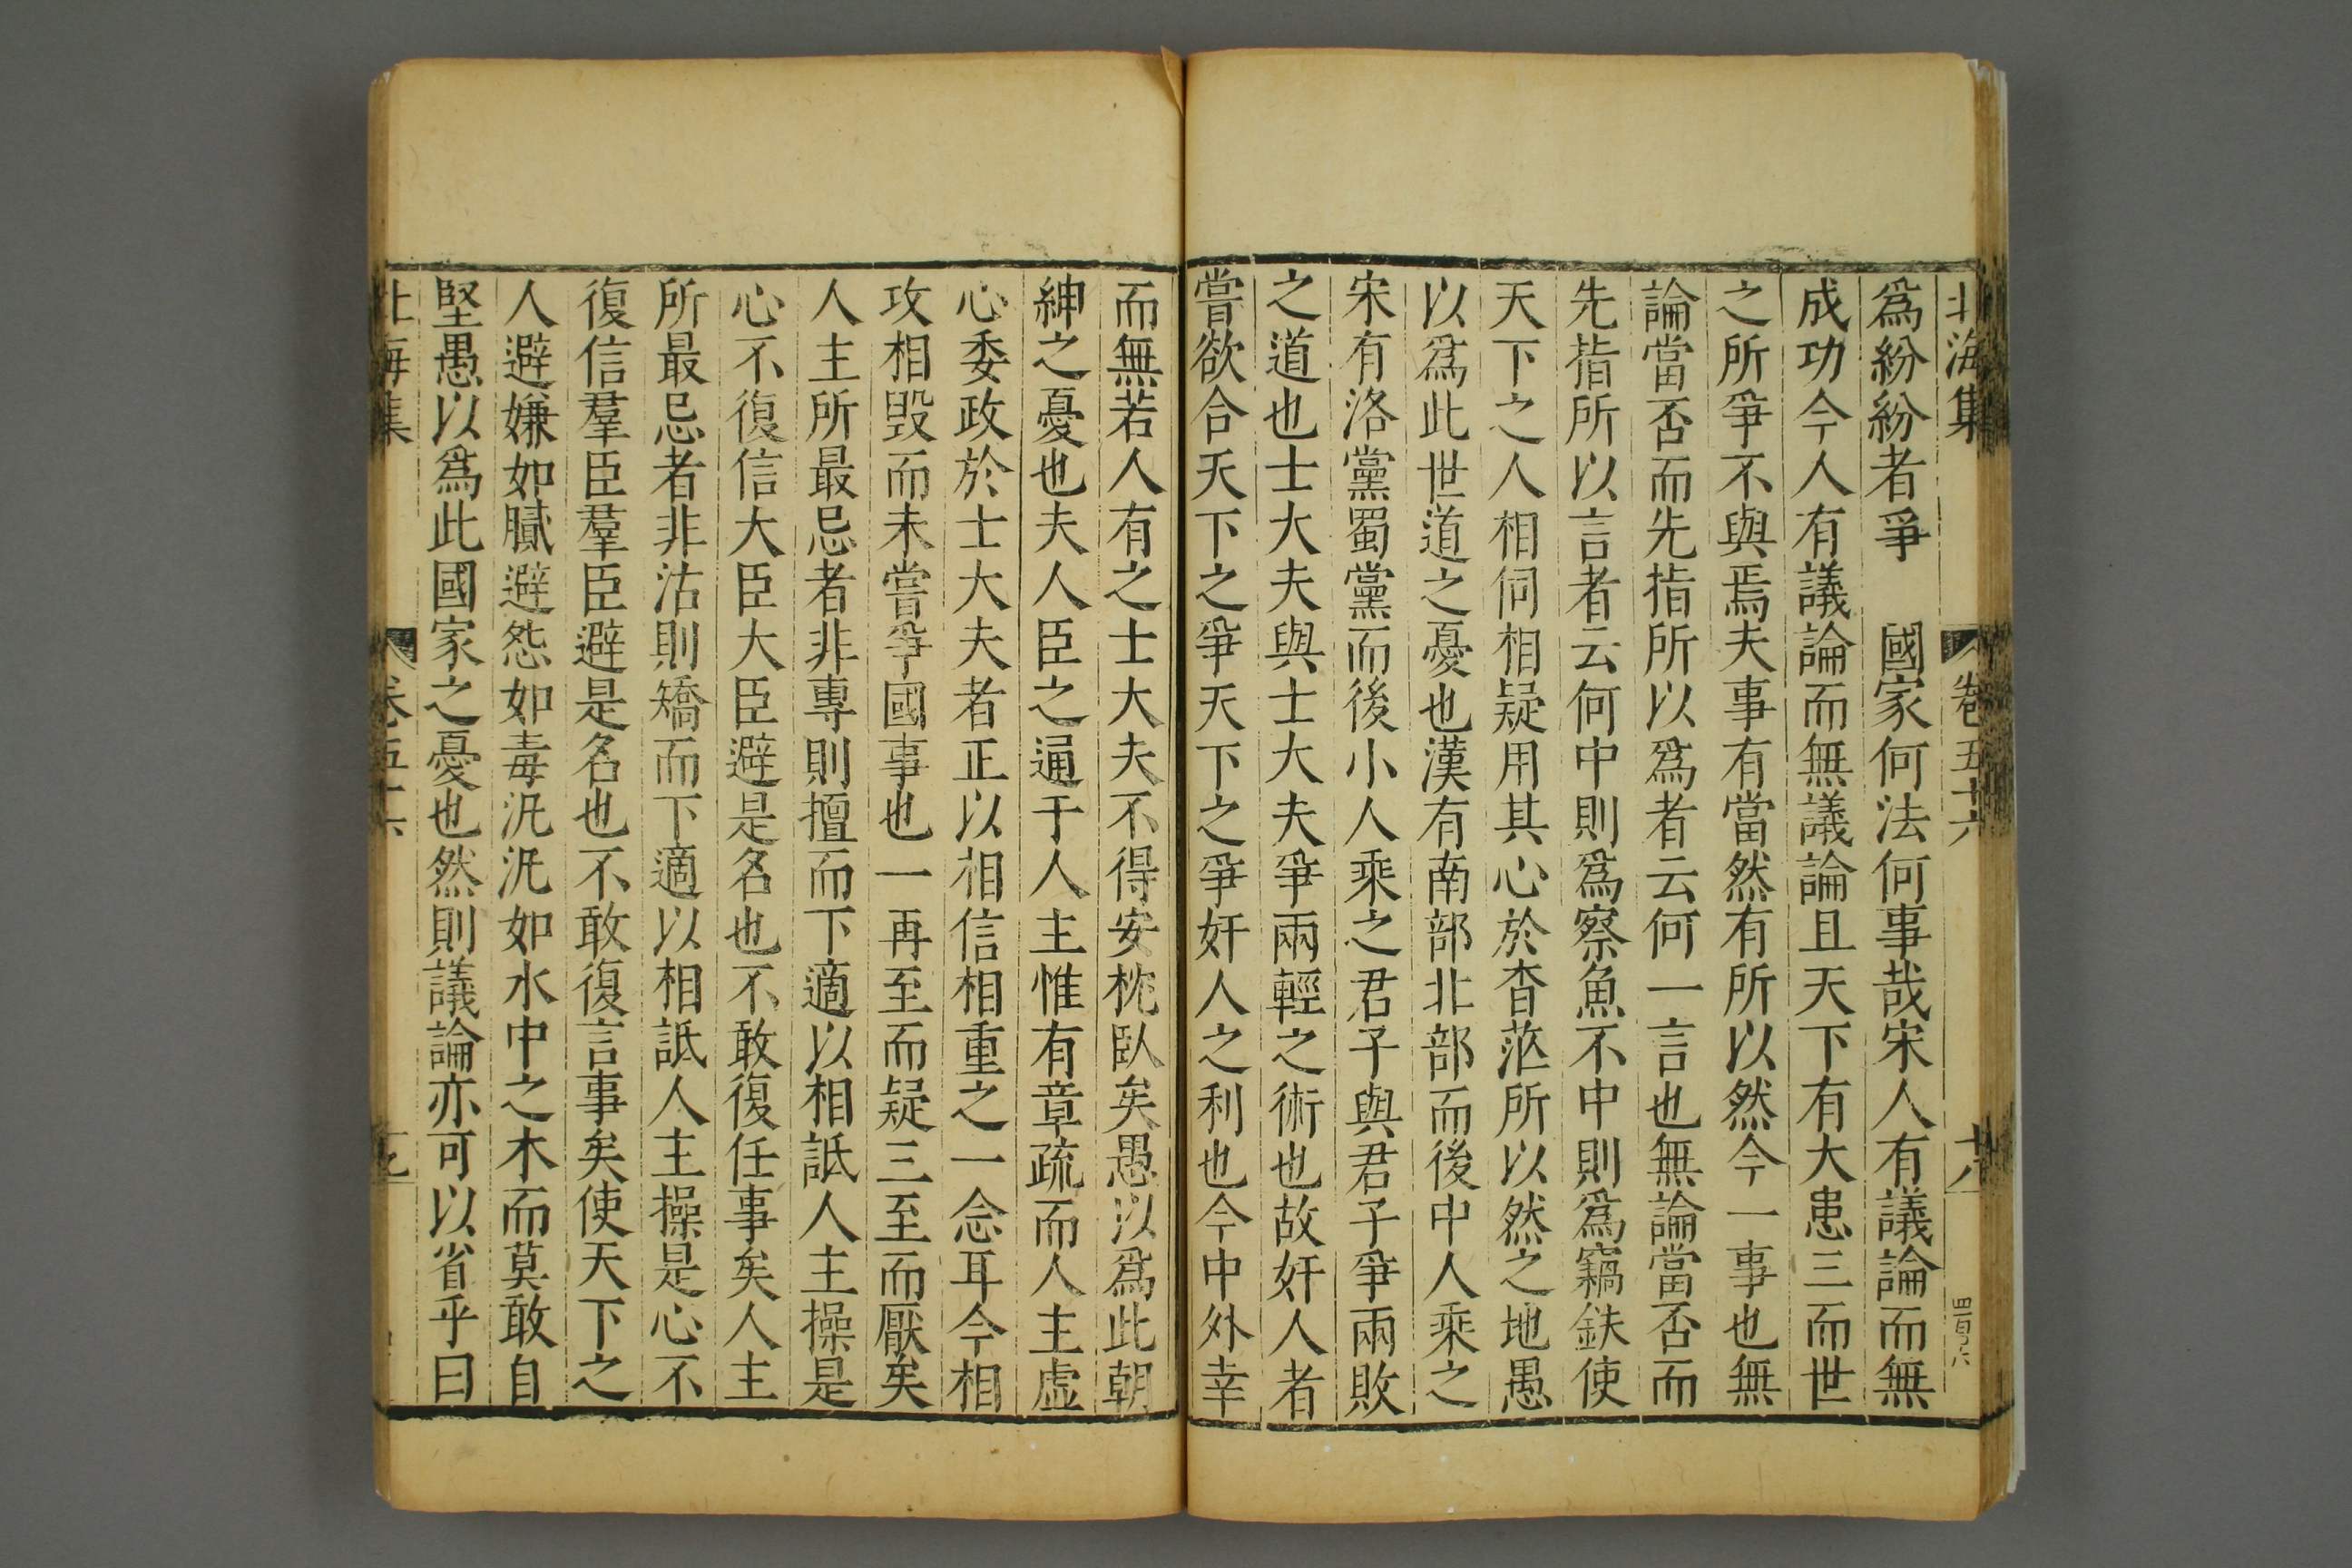 北海集 卷五十六 十八 四百八
爲紛紛者爭　國家何法何事哉宋人有議論而無
成功今人有議論而無議論且天下有大患三而世
之所爭不與焉夫事有當然有所以然今一事也無
論當否而先指所以爲者云何一言也無論當否而
先指所以言者云何中則爲察魚不中則爲竊鈇使
天下之人相伺相疑用其心於杳茫所以然之地愚
以爲此世道之憂也漢有南部北部而後中人乘之
宋有洛黨蜀黨而後小人乘之君子與君子爭兩敗
之道也士大夫與士大夫爭兩輕之術也故奸人者
嘗欲合天下之爭天下之爭奸人之利也今中外幸
而無若人有之士大夫不得安枕臥矣愚以爲此朝
紳之憂也夫人臣之通于人主惟有章疏而人主虛
心委政於士大夫者正以相信相重之一念耳今相
攻相毀而未嘗爭國事也一再至而疑三至而厭矣
人主所最忌者非專則擅而下適以相詆人主操是
心不復信大臣大臣避是名也不敢復任事矣人主
所最忌者非沽則矯而下適以相詆人主操是心不
復信羣臣羣臣避是名也不敢復言事矣使天下之
人避嫌如膩避怨如毒汎汎如水中之木而莫敢自
堅愚以爲此國家之憂也然則議論亦可以省乎曰
北海集 卷五十六